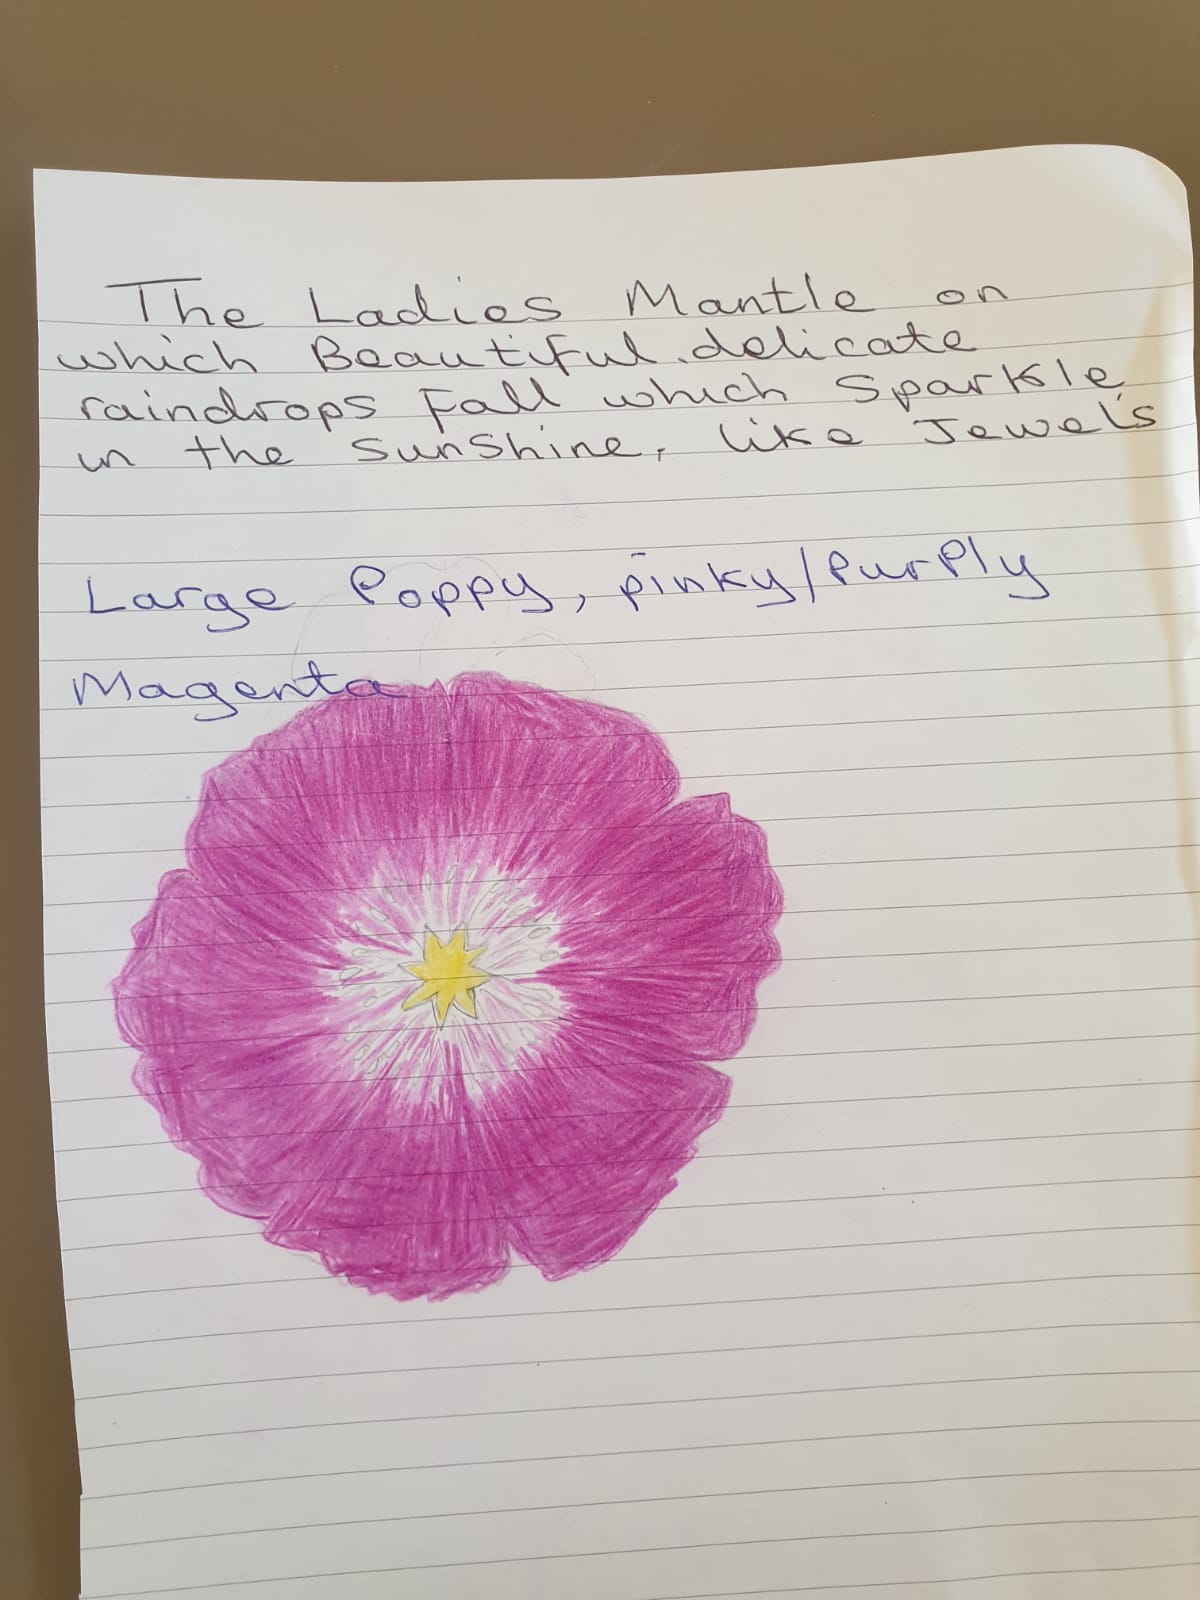 The Ladies Mantle on
which Beautiful delicate
raindrops Fall which Sparkle
in the Sunshine, like Jewels
Large Poppy, pinky/Purply
Magenta